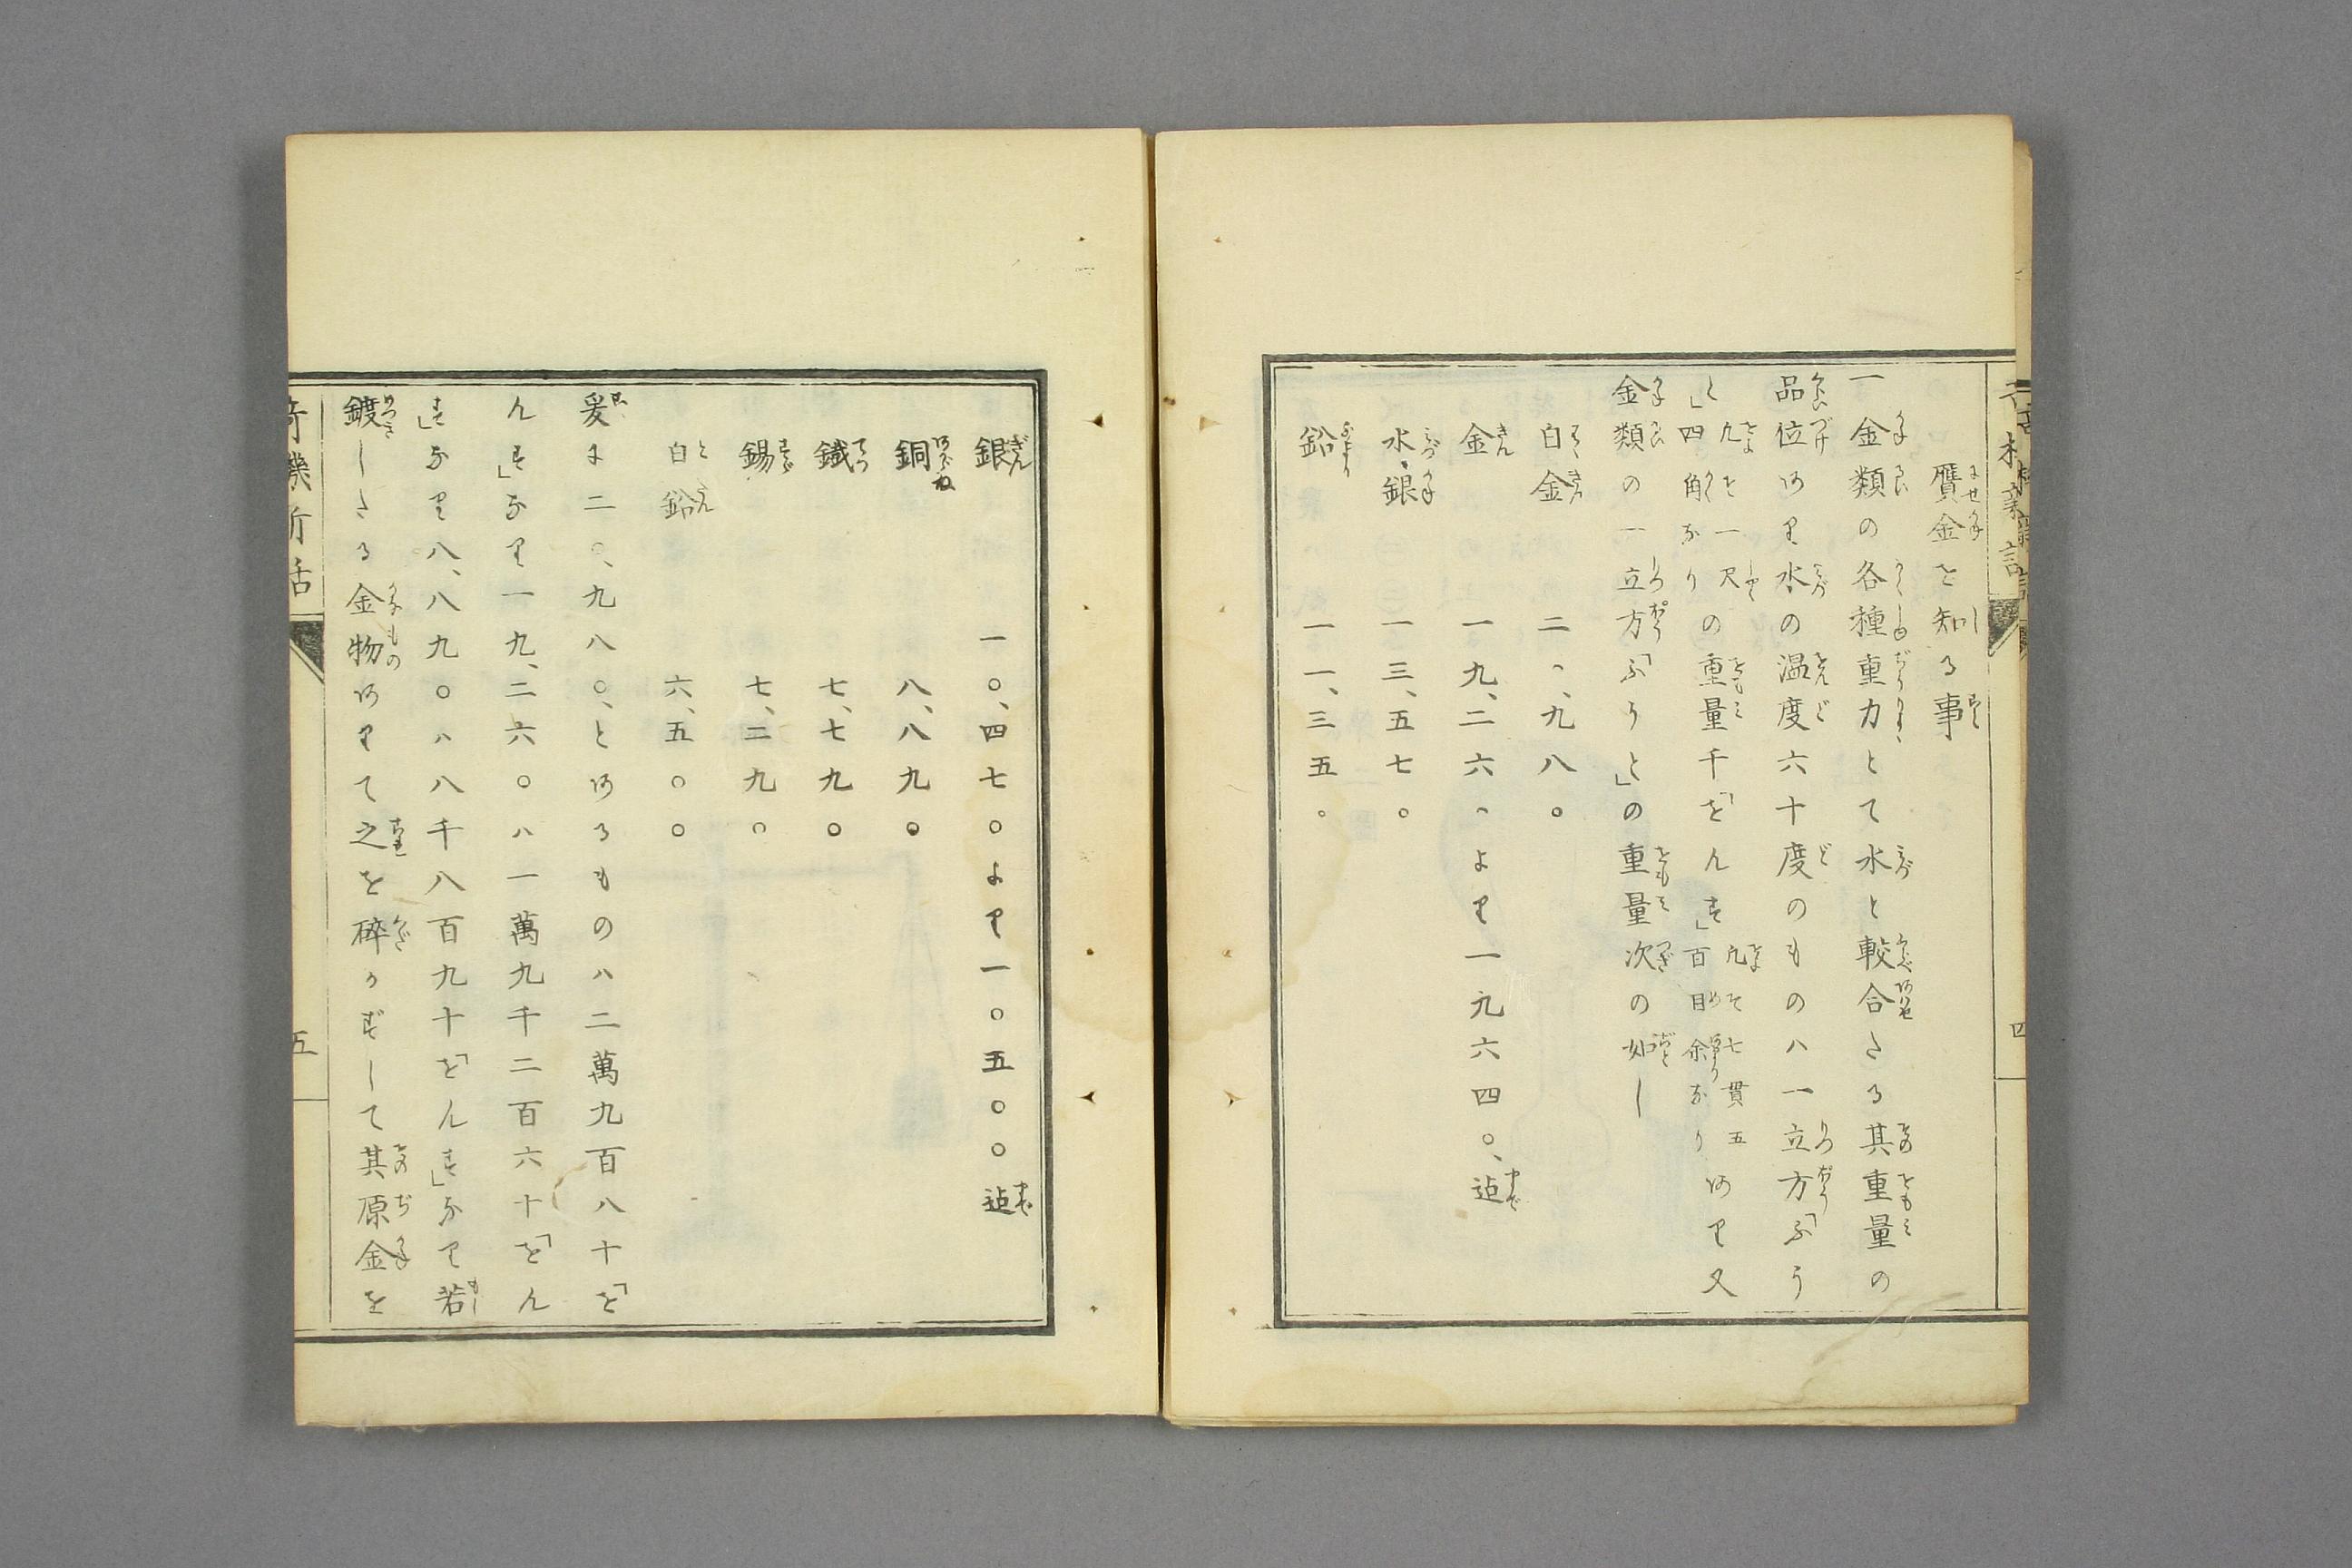 贋金を知る事
一 金類の各種重力とて水と較合たる其重量の
品位あり水の温度六十度のものハ一立方「ふう
と」凡そ一尺四角なりの重量千「をんす」凡そ七貫五百目余なりあり又
金類の一立方「ふうと」の重量次の如し
白金 二〇、九八〇
金 一九、二六〇より一九六四〇、迠
水銀 一三、五七〇
鉛 一一、三五〇
銀 一〇、四七〇より一〇五〇〇迠
銅 八、八九〇
鐵 七、七九〇
錫 七、二九〇
白鉛 六、五〇〇
爰に二〇、九八〇、とあるものハ二萬九百八十「を
んす」なり一九、二六〇ハ一萬九千二百六十「をん
す」なり八、八九〇ハ八千八百九十「をんす」なり若
鍍したる金物ありて之を碎かずして其原金を
奇機新話
五
四